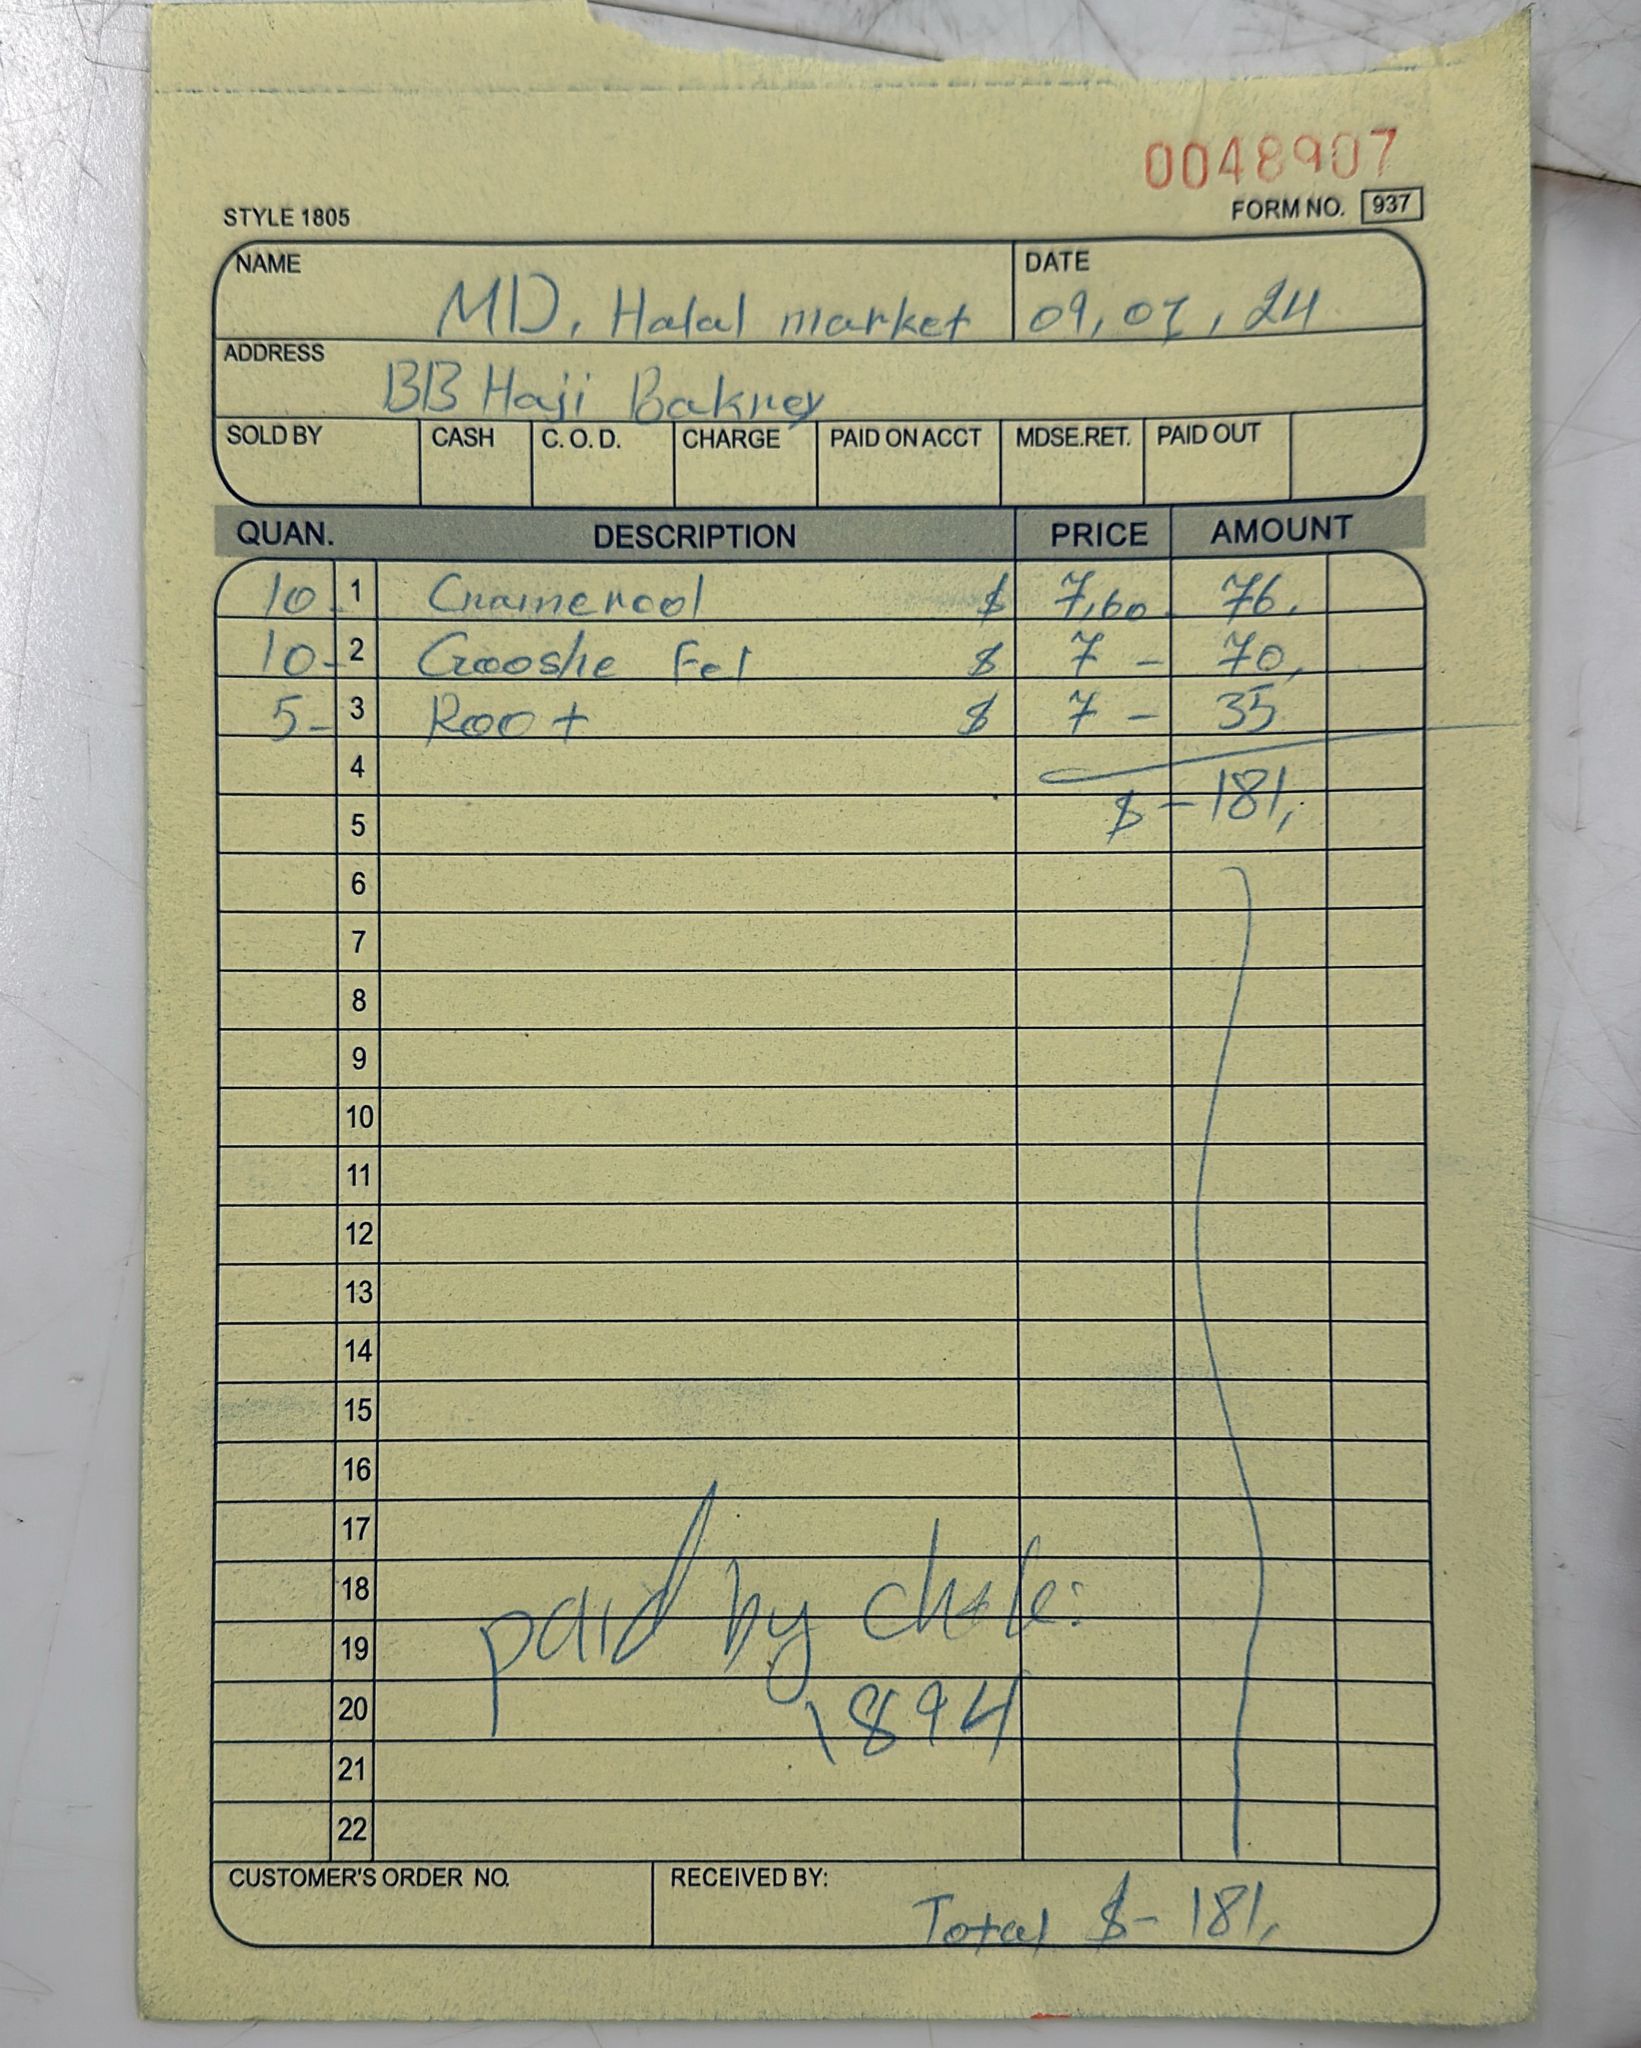 0048907
STYLE 1805 FORM NO. 937
NAME MD, Halal market DATE 09,07,24
ADDRESS BB Haji Bakney
SOLD BY CASH C. O. D. CHARGE PAID ON ACCT MDSE.RET. PAID OUT
QUAN. DESCRIPTION PRICE AMOUNT
10- 1 $ 7,60 76,
10- 2 Gooshe Fel $ 7 - 70,
5- 3 Root $ 7 - 35
4
$ - 181,
5
6
7
8
9
10
11
12
13
14
15
16
17
18
paid by chek:
19
20 1894
21
22
CUSTOMER'S ORDER NO. RECEIVED BY:
Total $- 181,